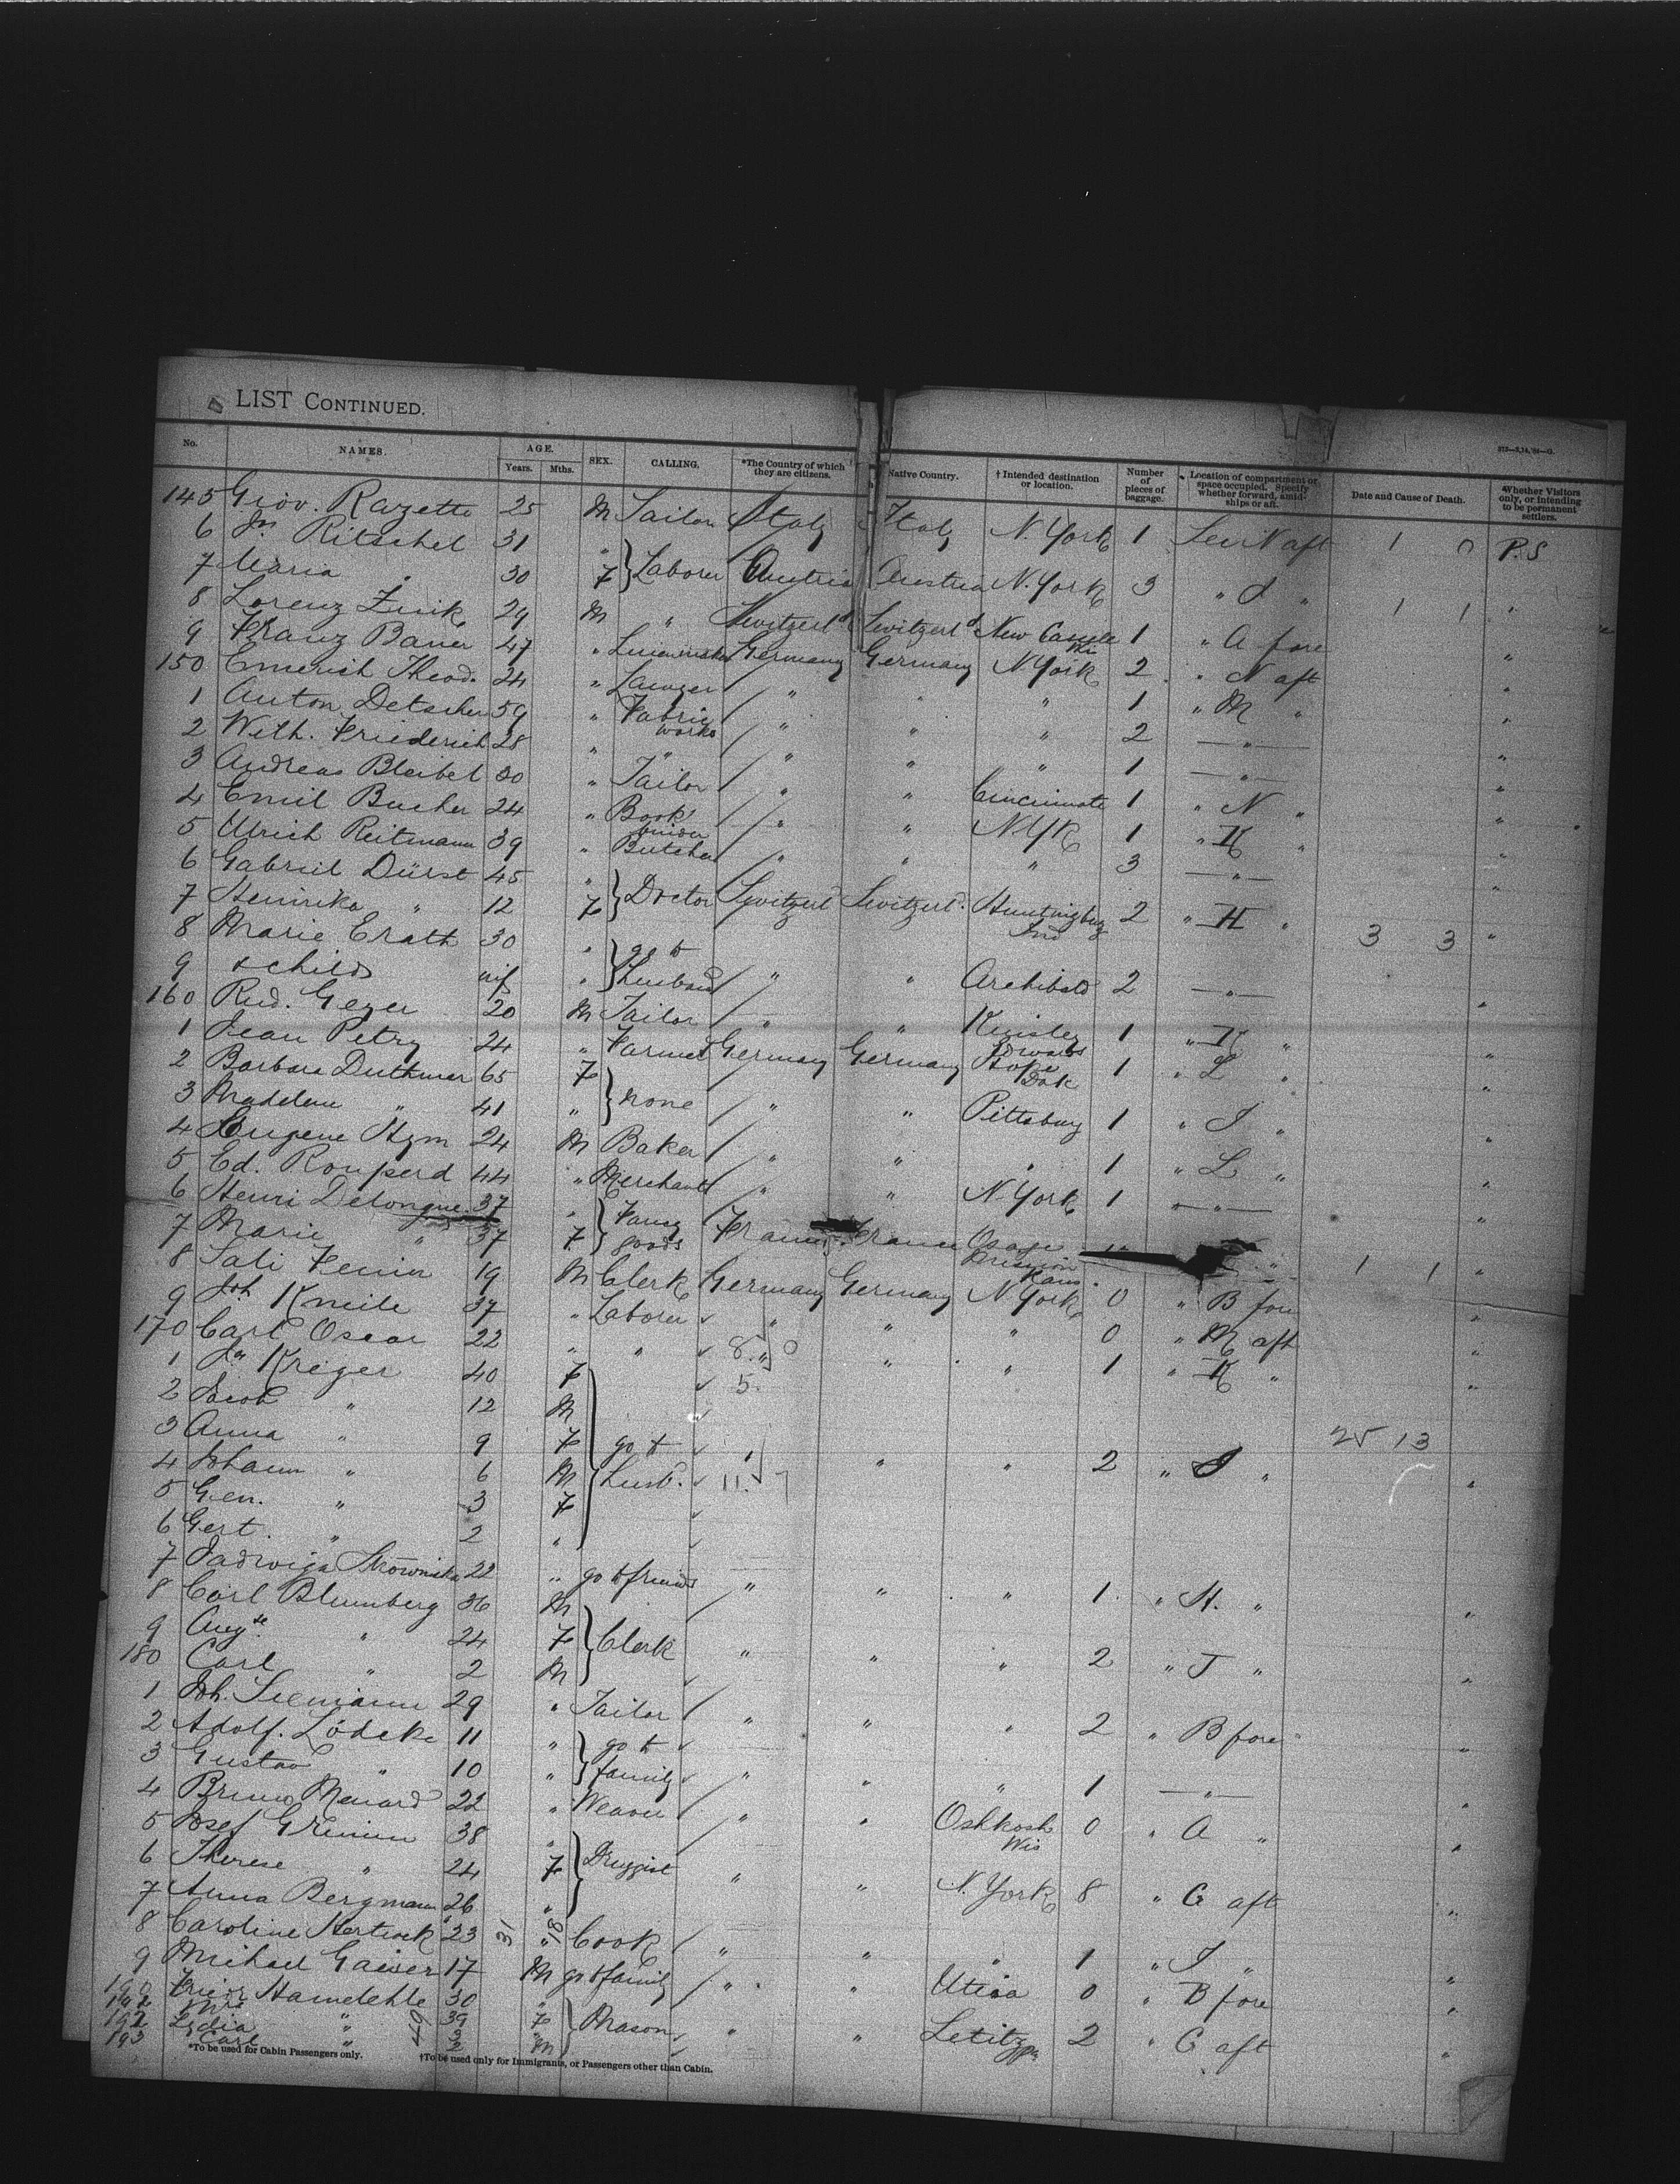 LIST CONTINUED.
No. NAMES. AGE. Years. Mths. SEX. CALLING. *The Country of which they are citizens. Native Country. † Intended destination or location. Number of pieces of baggage. Location of compartment or space occupied. Specify whether forward, amidships or aft. Date and Cause of Death. Whether Visitors only, or intending to be permanent settlers.
145 Giov. Razetto 25 M Tailor Italy Italy N. York 1 aft 1 0 P.S
6 Jn Ritschel 31 "
7 Maria " 30 F Laborer Austria Austria N. York 3 " J " 1 1 "
8 Lorenz Zink 29 M " Switzerld Switzerld New 1 " A fore "
9 Franz Bauer 47 " Germany Germany N. York 2 " N aft "
150 Emerich Theod. 24 " Lawyer " " " 1 " M " "
1 Anton Detscher 59 " Fabric works " " " 2 " "
2 Wilh. Friederich 28 " " " " " 1 " "
3 Andreas Bleibel 20 " Tailor " " Cincinnati 1 " N " "
4 Emil Bucher 24 " Book binder " " N. Yk 1 " K " "
5 Ulrich Reitmann 39 " Butcher " " " 3 " "
6 Gabriel Dürst 45 "
7 Henrika " 12 F Doctor Switzerl Switzerl. Huntingburg Ind 2 " H " 3 3 "
8 Marie Erath 30 "
9 & child inf " go to husband " " Archibald 2 " "
160 Rud. Geyer 20 M Tailor " " Kinsley Edwards 1 " K " "
1 Jean Petry 24 " Farmer Germany Germany Hope Dak 1 " L " "
2 Barbara Duthmar 65 F
3 Madelene " 41 " none " " Pittsburg 1 " J " "
4 Eugene Hym 24 M Baker " " " 1 " L " "
5 Ed. Rouperd 44 " Merchant " " N. York 1 " "
6 Henri Delongue 37 "
7 Marie " 37 F Fancy goods France France Osage Mission Kans. 1 1 "
8 Sali 19 M Clerk Germany Germany N. York 0 " B fore "
9 Joh Kneile 37 " Laborer " " " 0 " M aft "
170 Carl Oscar 22 " " 8. " " " 1 " K " "
1 Jn Kreger 40 F 5.
2 Jacob " 12 M
3 Anna " 9 F go to
4 Johann " 6 M husb. 11. 7 " " 2 " J " 25 13 "
5 Gen. " 3 F
6 Gert. " 2 "
7 Jadwiga 22 " go to friends " " " 1 " H. " "
8 Carl Blumberg 36 M
9 Augste " 24 F Clerk " " " 2 " J " "
180 Carl " 2 M
1 Joh. Siemann 29 " Tailor " " " 2 " B fore "
2 Adolf. Lödeke 11 " go to
3 Gustav " 10 " family " " " 1 " "
4 Bruno Menard 22 " Weaver " " Oshkosh Wis 0 " A " "
5 Josef 38 "
6 Therese " 24 F Druggist " " N. York 8 " G aft "
7 Anna Bergmann 26 "
8 Caroline 23 31 " 18 Cook " " " 1 " J " "
9 Michael Gaiser 17 M go to family " " Utica 0 " B fore "
190 Hamdehle 30 "
191 Mrs " 39 F Mason " " Letitz pa 2 " G aft "
192 Lydia " 3 "
193 Carl " 2 M
49
*To be used for Cabin Passengers only. †To be used only for Immigrants, or Passengers other than Cabin.